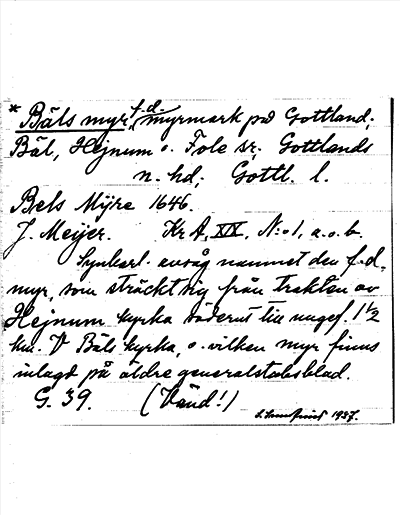 * Bäls myr, f.d. myrmark på Gottland;
Bäl, Hejnum o. Fole sr; Gottlands
n. hd; Gottl. l.
Bels Mÿre 1646.
J. Meijer. Kr A, XIX, N:o 1, a.o.b.
Synbarl. avsåg namnet den f.d.
myr, som sträckt sig från trakten av
Hejnum kyrka söderut till ungef. 1 1/2
km. V Bäls kyrka, o. vilken myr finns
inlagd på äldre generalstabsblad.
G. 39. (Vänd!)
1937.